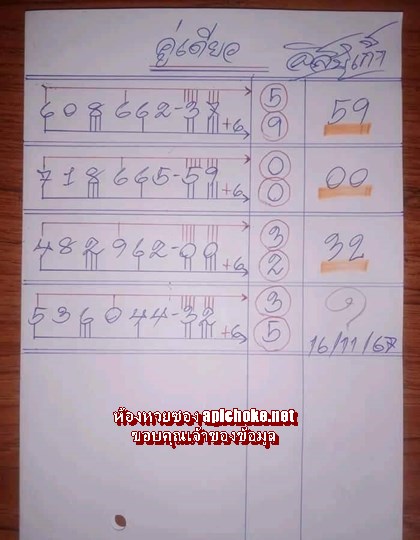 คู่เดียว
608 662-37 +6 5 9 59
718 665-59 +6 0 0 00
482 962-00 +6 3 2 32
536 044-32 +6 3 5 ?
16/11/67
ห้องหวยซอง apichoke.net
ขอบคุณเจ้าของข้อมูล